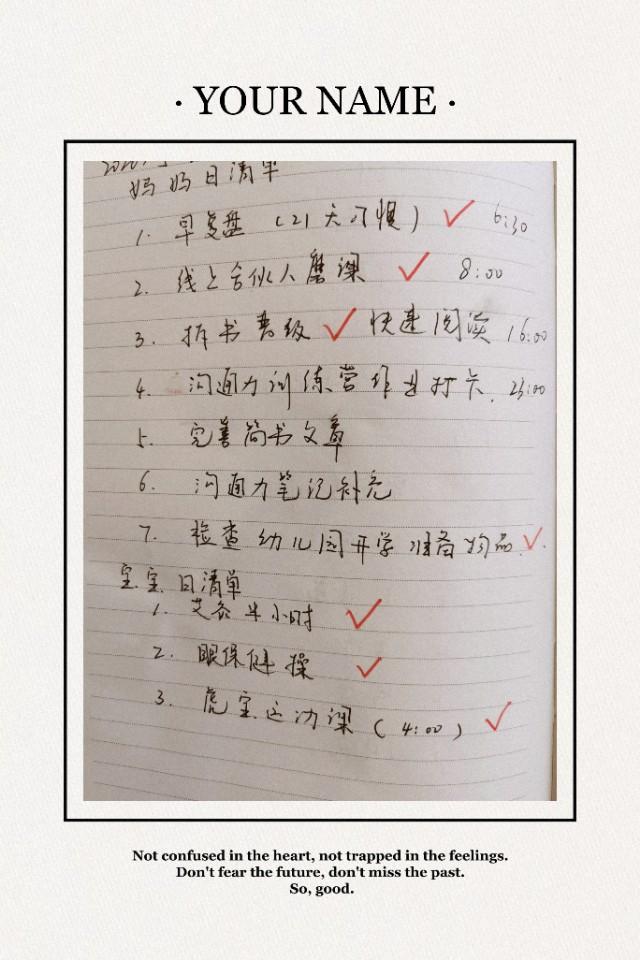 · YOUR NAME ·
妈妈日清单
1. 早复盘 (21天习惯) ✓ 6:30
2. 线上合伙人磨课 ✓ 8:00
3. 拆书晋级 ✓ 快速阅读 16:00
4. 沟通力训练营作业打卡. 23:00
5. 完善简书文章
6. 沟通力笔记补充
7. 检查幼儿园开学准备物品. ✓
宝宝日清单
1. 艾灸半小时 ✓
2. 眼保健操 ✓
3. 虎宝运动课 (4:00) ✓
Not confused in the heart, not trapped in the feelings.
Don't fear the future, don't miss the past.
So, good.